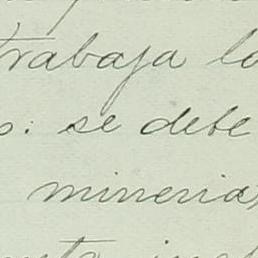 trabaja lo
s: se debe
mineria